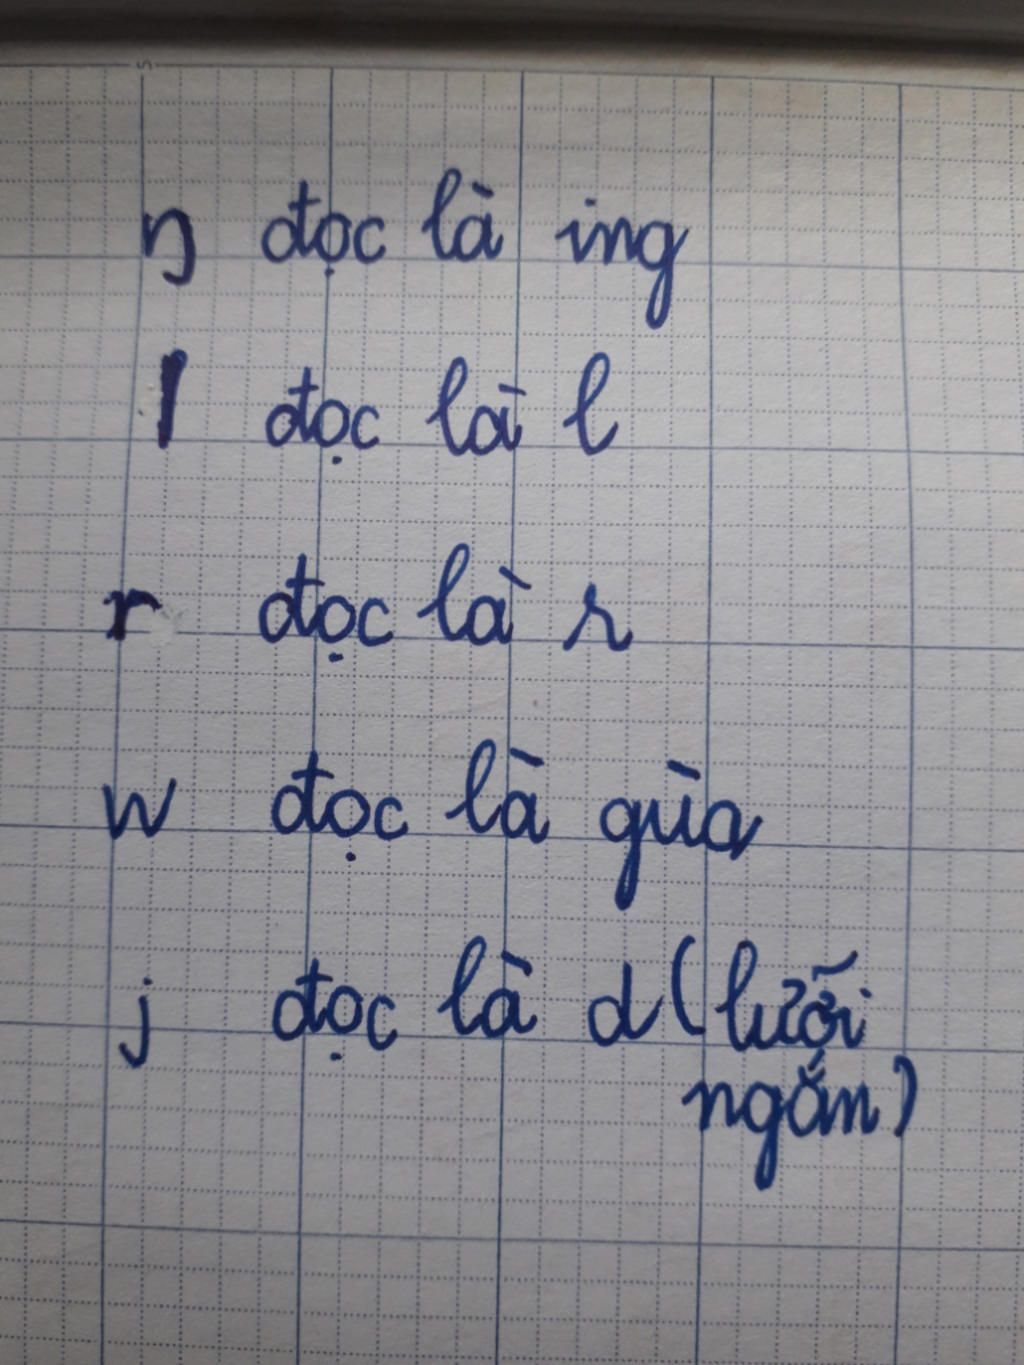 ŋ đọc là ing
l đọc là l
r đọc là r
w đọc là gùa
j đọc là d (lưỡi
ngắn)